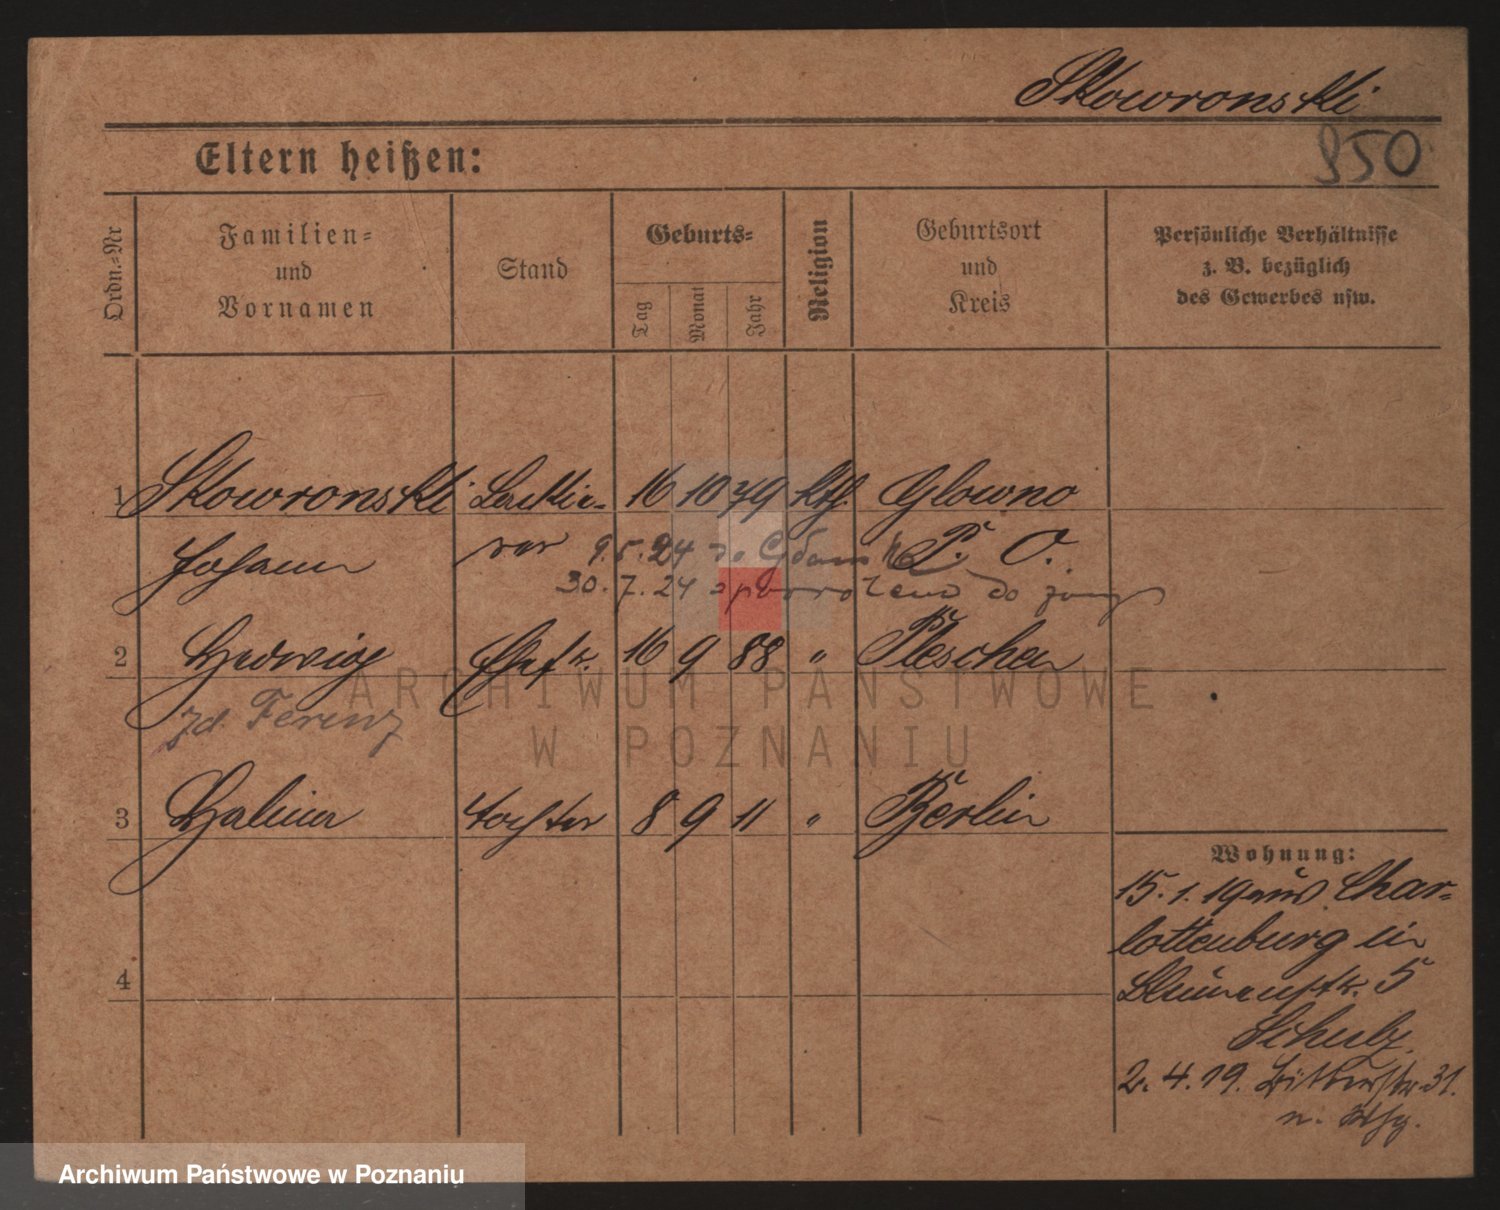 Skowronski
950
Eltern heißen:
Ordn.-Nr
Familien-
und
Vornamen
Stand
Geburts-
Tag
Monat
Jahr
Religion
Geburtsort
und
Kreis
Persönliche Verhältnisse
z. B. bezüglich
des Gewerbes usw.
1 Skowronski Lackie- 16 10 79 kth. Glowno
Johann rer P. O.
9.5.24 do Gdańska
30.7.24 spowrotem do żony
2 Hedwig Ehefr. 16 9 88 " Pleschen
zd. Ferenz
3 Halina Tochter 8 9 11 " Berlin
4
Wohnung:
15.1.19 aus Char-
lottenburg in
Blumenstr. 5
Schulz.
2.4.19. Bitterstr. 31.
n. Whg.
ARCHIWUM PAŃSTWOWE
W POZNANIU
Archiwum Państwowe w Poznaniu